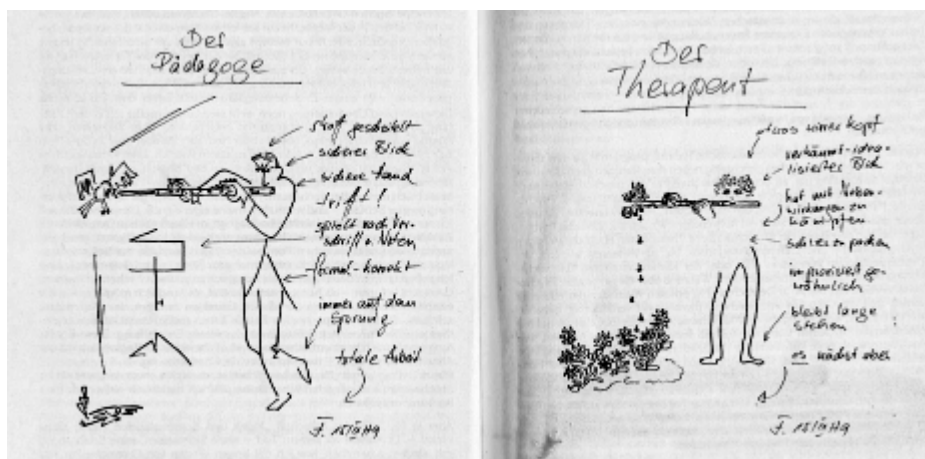 Der
Pädagoge
straff gescheitelt
sicherer Blick
sichere Hand
trifft!
spielt nach Vor-
schrift u. Noten
formal-korrekt
immer auf dem
Sprung
totale Arbeit
Der
Therapeut
etwas wirrer Kopf
verträumt-idea-
lisierter Blick
hat mit Neben-
wirkungen zu
kämpfen
schwer zu packen
improvisiert ge-
wöhnlich
bleibt lange
stehen
es wächst aber